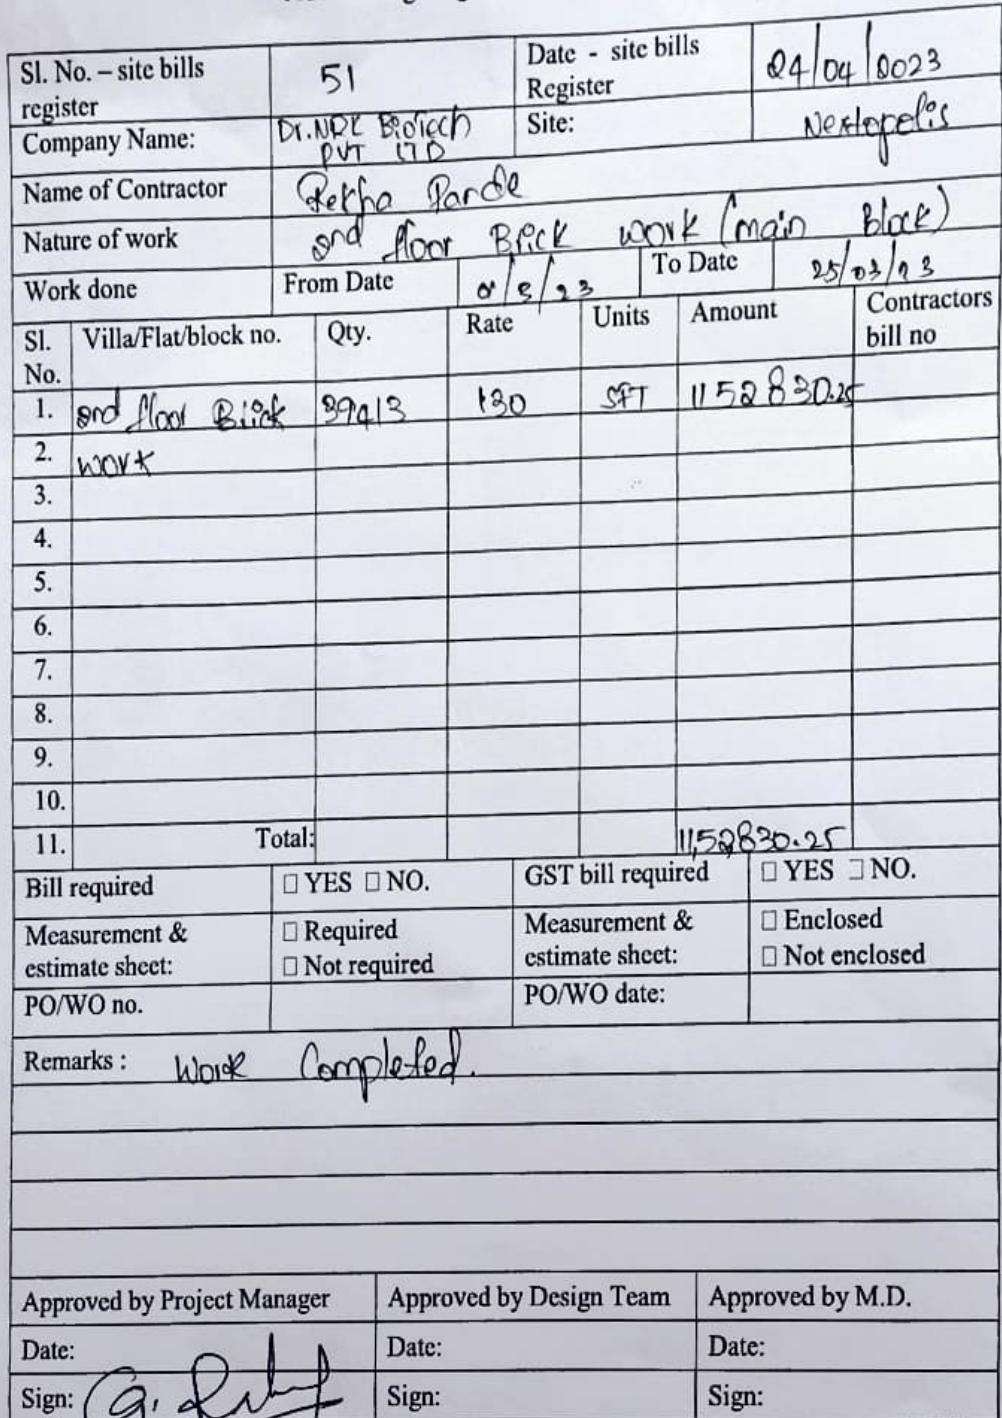 Sl. No. – site bills register 51 Date - site bills Register 24/04/2023
Company Name: Dr.NRK BioTech PVT LTD Site: Nextopolis
Name of Contractor Rekha Pande
Nature of work 2nd floor Brick work (main Block)
Work done From Date To Date 25/03/23
Sl. No. Villa/Flat/block no. Qty. Rate Units Amount Contractors bill no
1. 2nd floor Brick 130 SFT 1152830.25
2. work
3.
4.
5.
6.
7.
8.
9.
10.
11. Total: 11,52830.25
Bill required □ YES □ NO. GST bill required □ YES □ NO.
Measurement & estimate sheet: □ Required □ Not required Measurement & estimate sheet: □ Enclosed □ Not enclosed
PO/WO no. PO/WO date:
Remarks : Work Completed.
Approved by Project Manager Approved by Design Team Approved by M.D.
Date: Date: Date:
Sign: Sign: Sign: